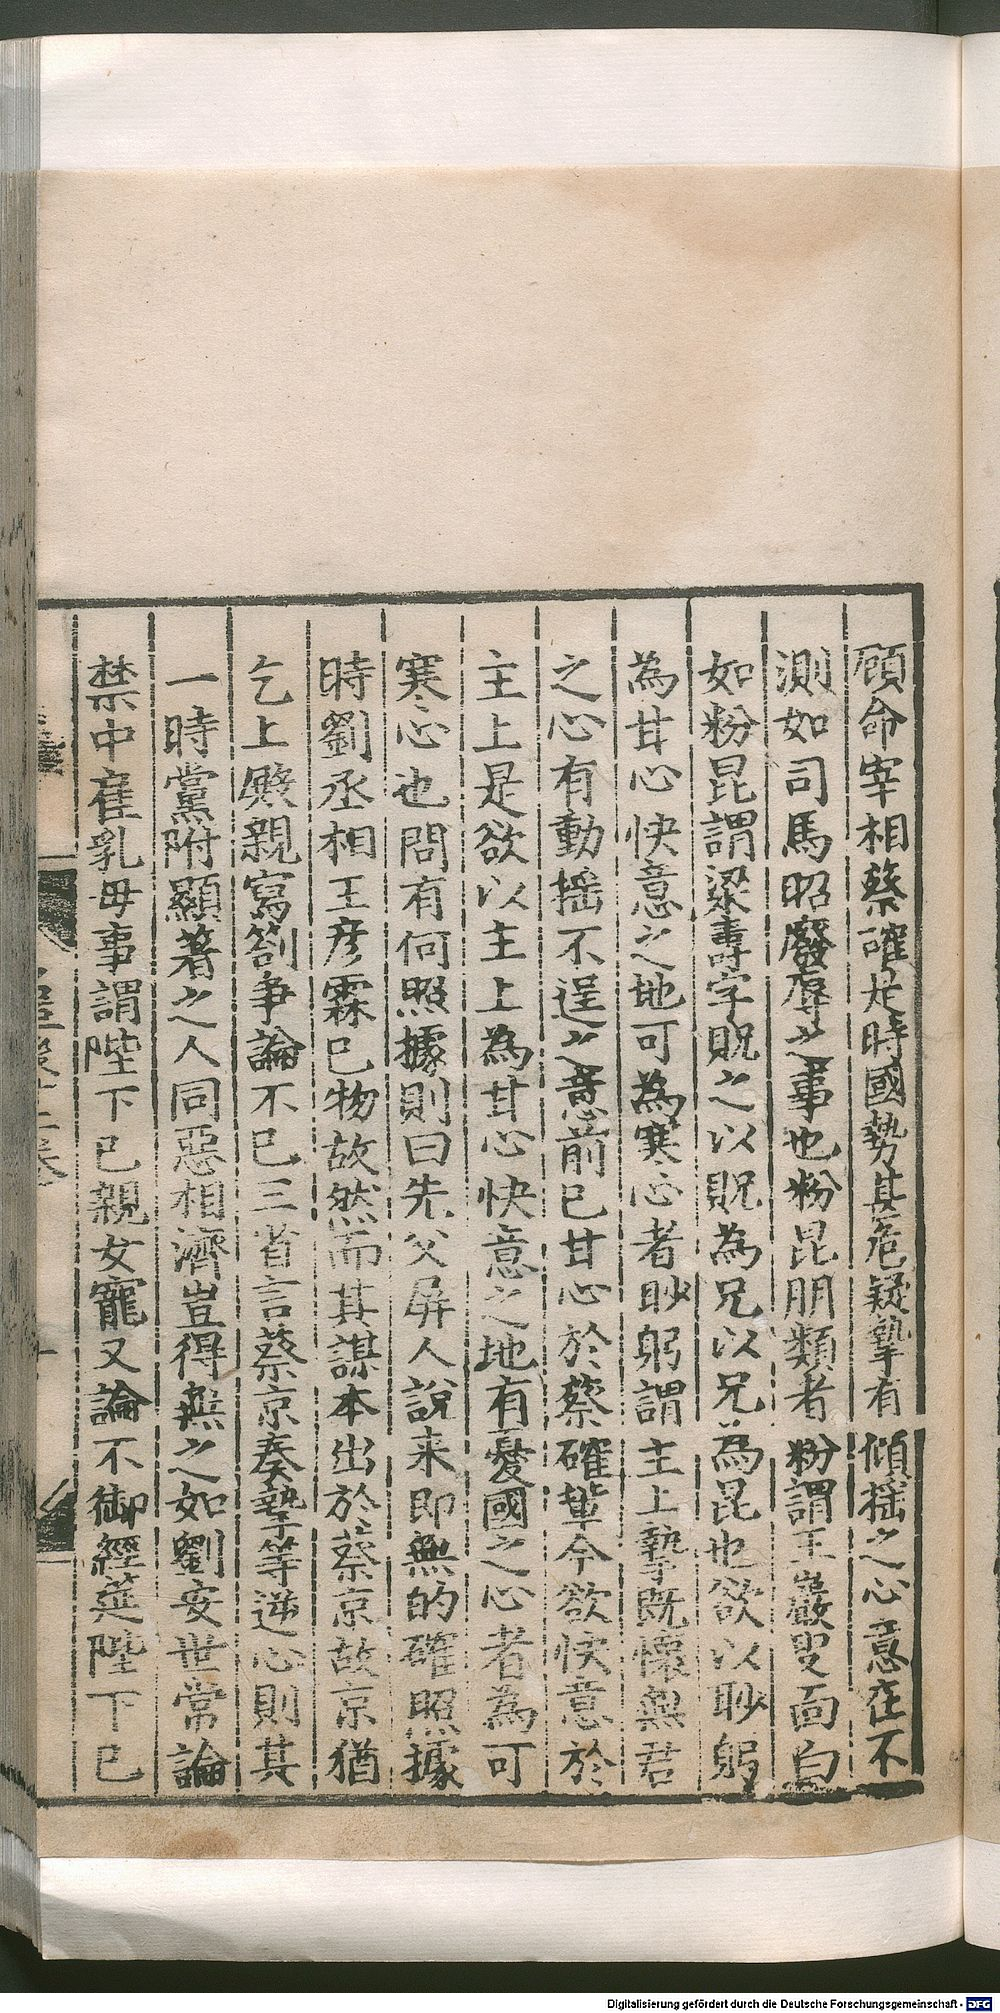 顧命宰相蔡確是時國勢甚危疑摯有傾揺之心意在不
測如司馬昭廢辱之事也粉昆朋類者粉謂王巖叟面白
如粉昆謂梁燾字況之以況為兄以兄為昆也欲以眇躬
為甘心快意之地可為寒心者眇躬謂主上摯既懷無君
之心有動揺不逞之意前已甘心於蔡確輩今欲快意於
主上是欲以主上為甘心快意之地有憂國之心者為可
寒心也問有何照據則曰先父屏人說来即無的確照據
時劉丞相王彦霖已物故然而其謀本出於蔡京故京猶
乞上殿親寫劄争論不已三省言蔡京奏摯等逆心則其
一時黨附顯著之人同惡相濟豈得無之如劉安世常論
禁中雇乳母事謂陛下已親女寵又論不御經筵陛下已